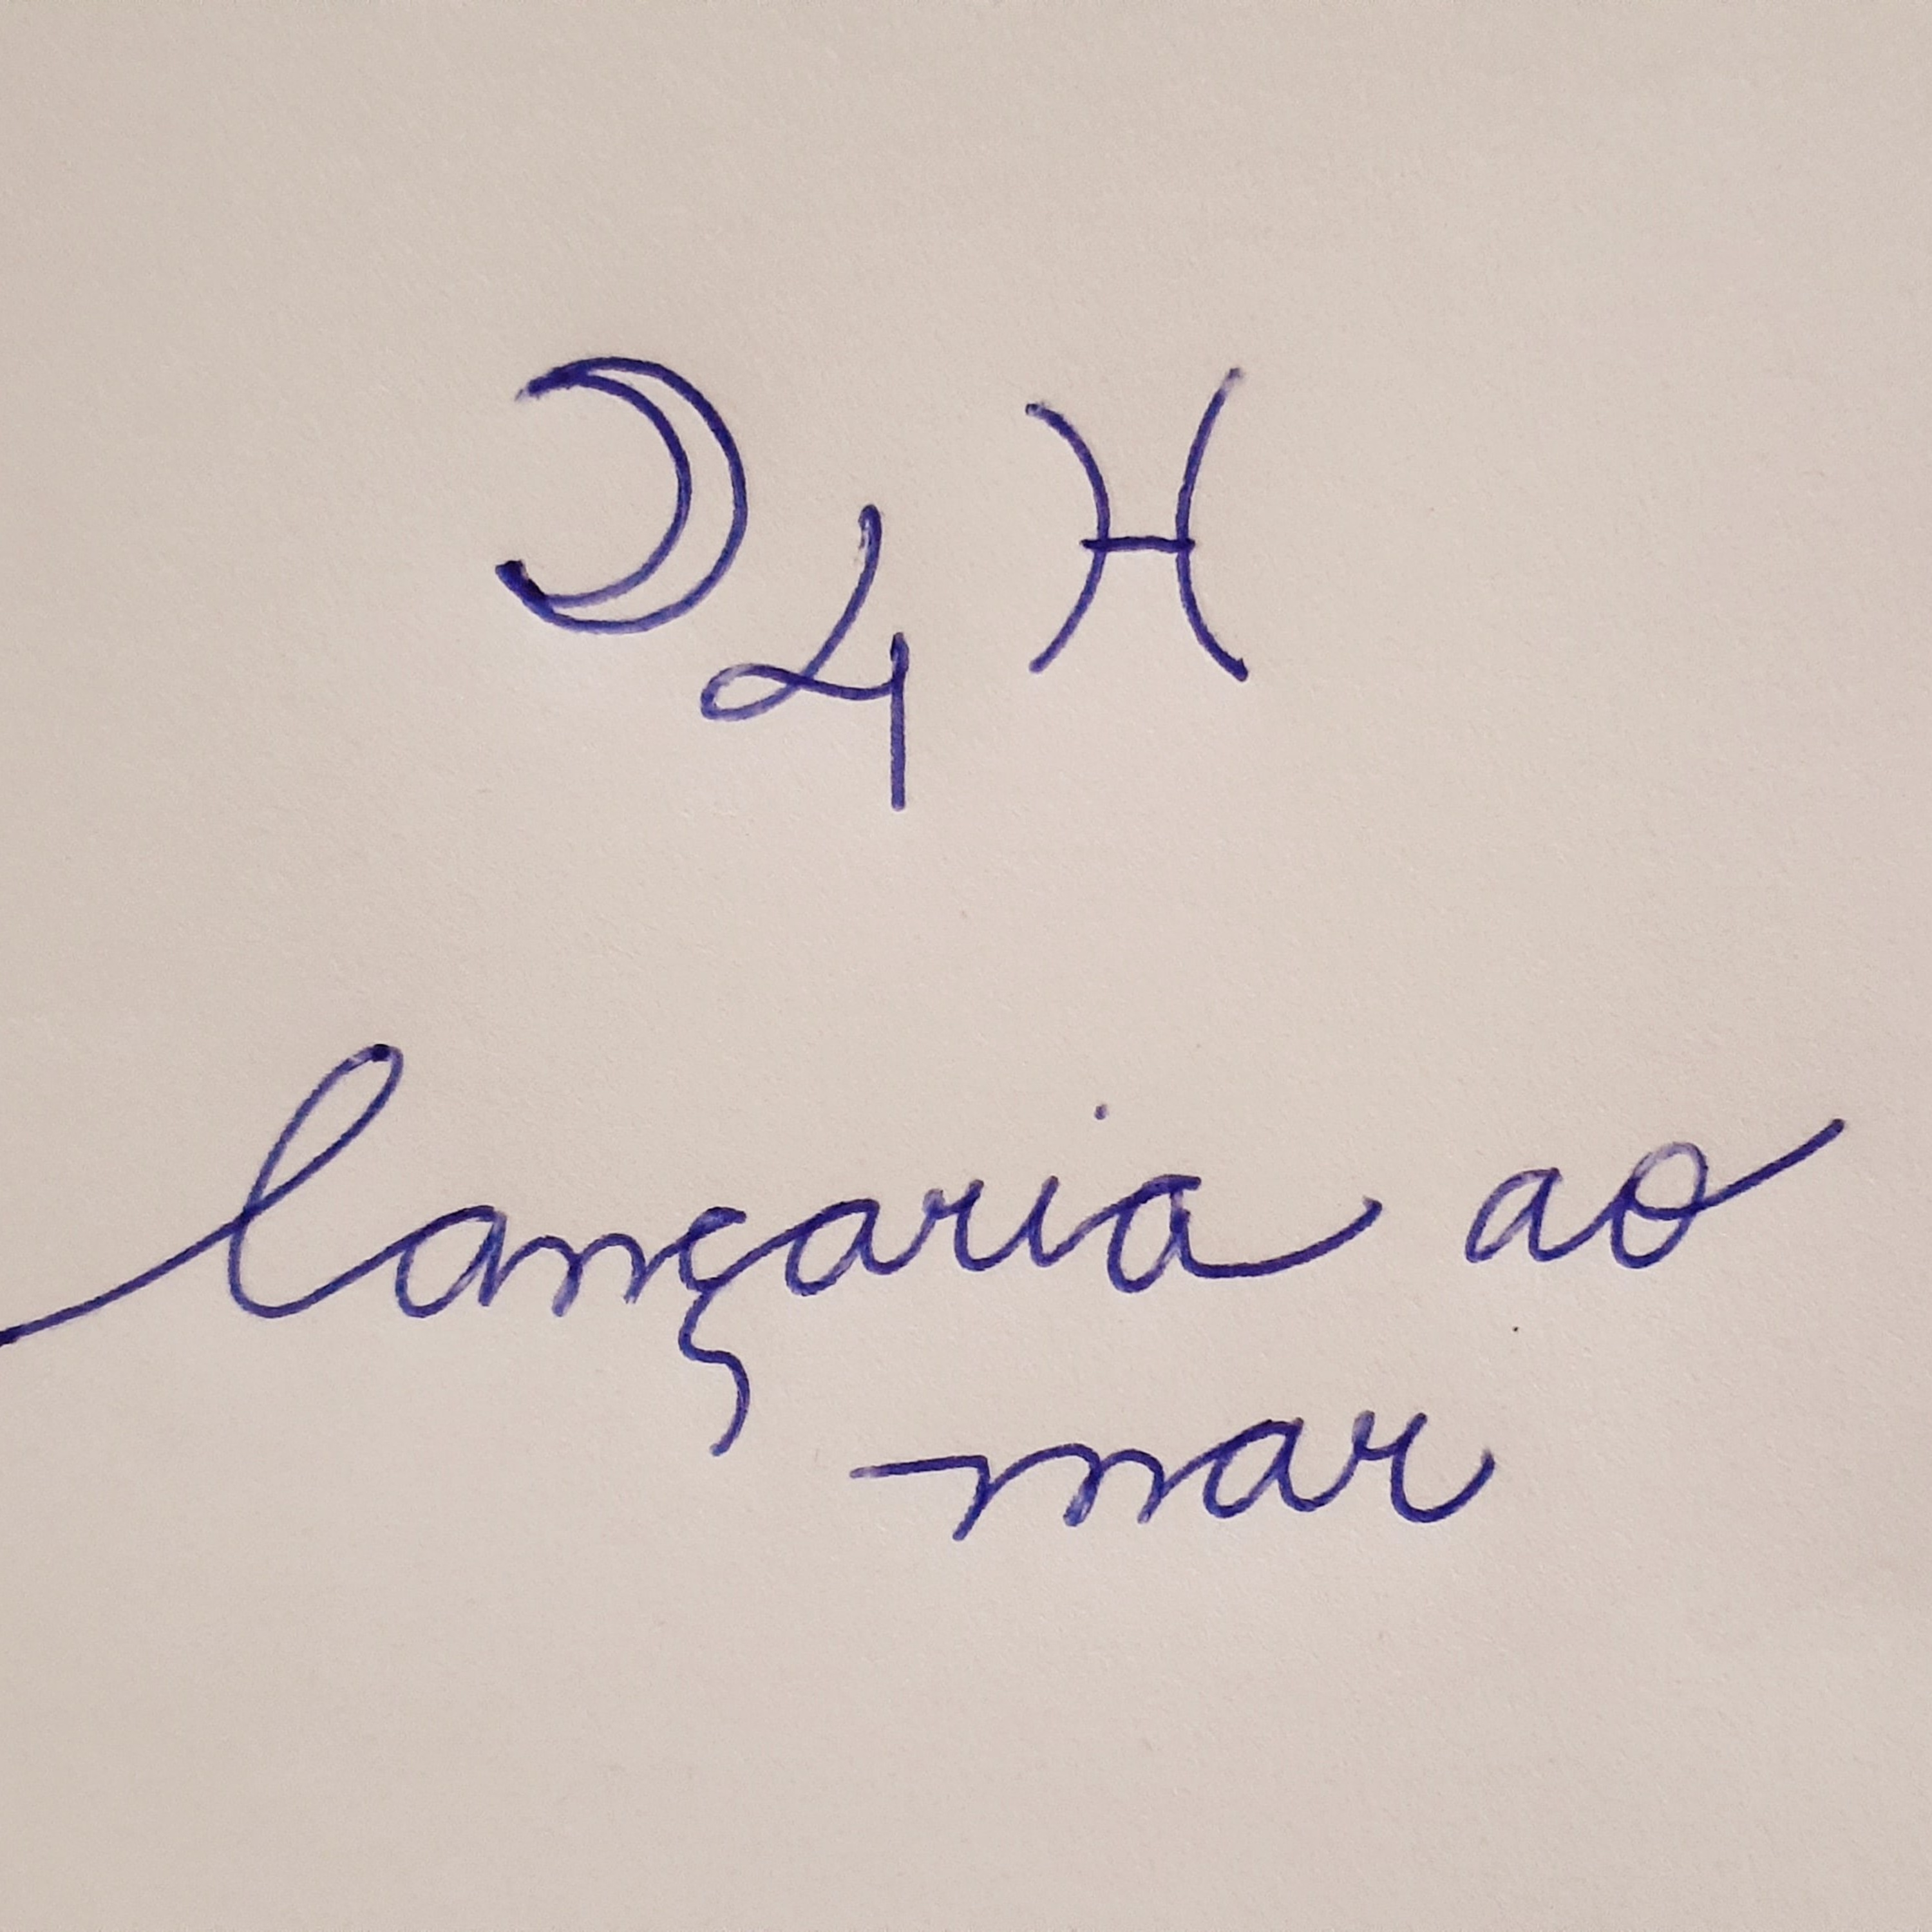 ☽♃ ♓
lançaria ao
mar